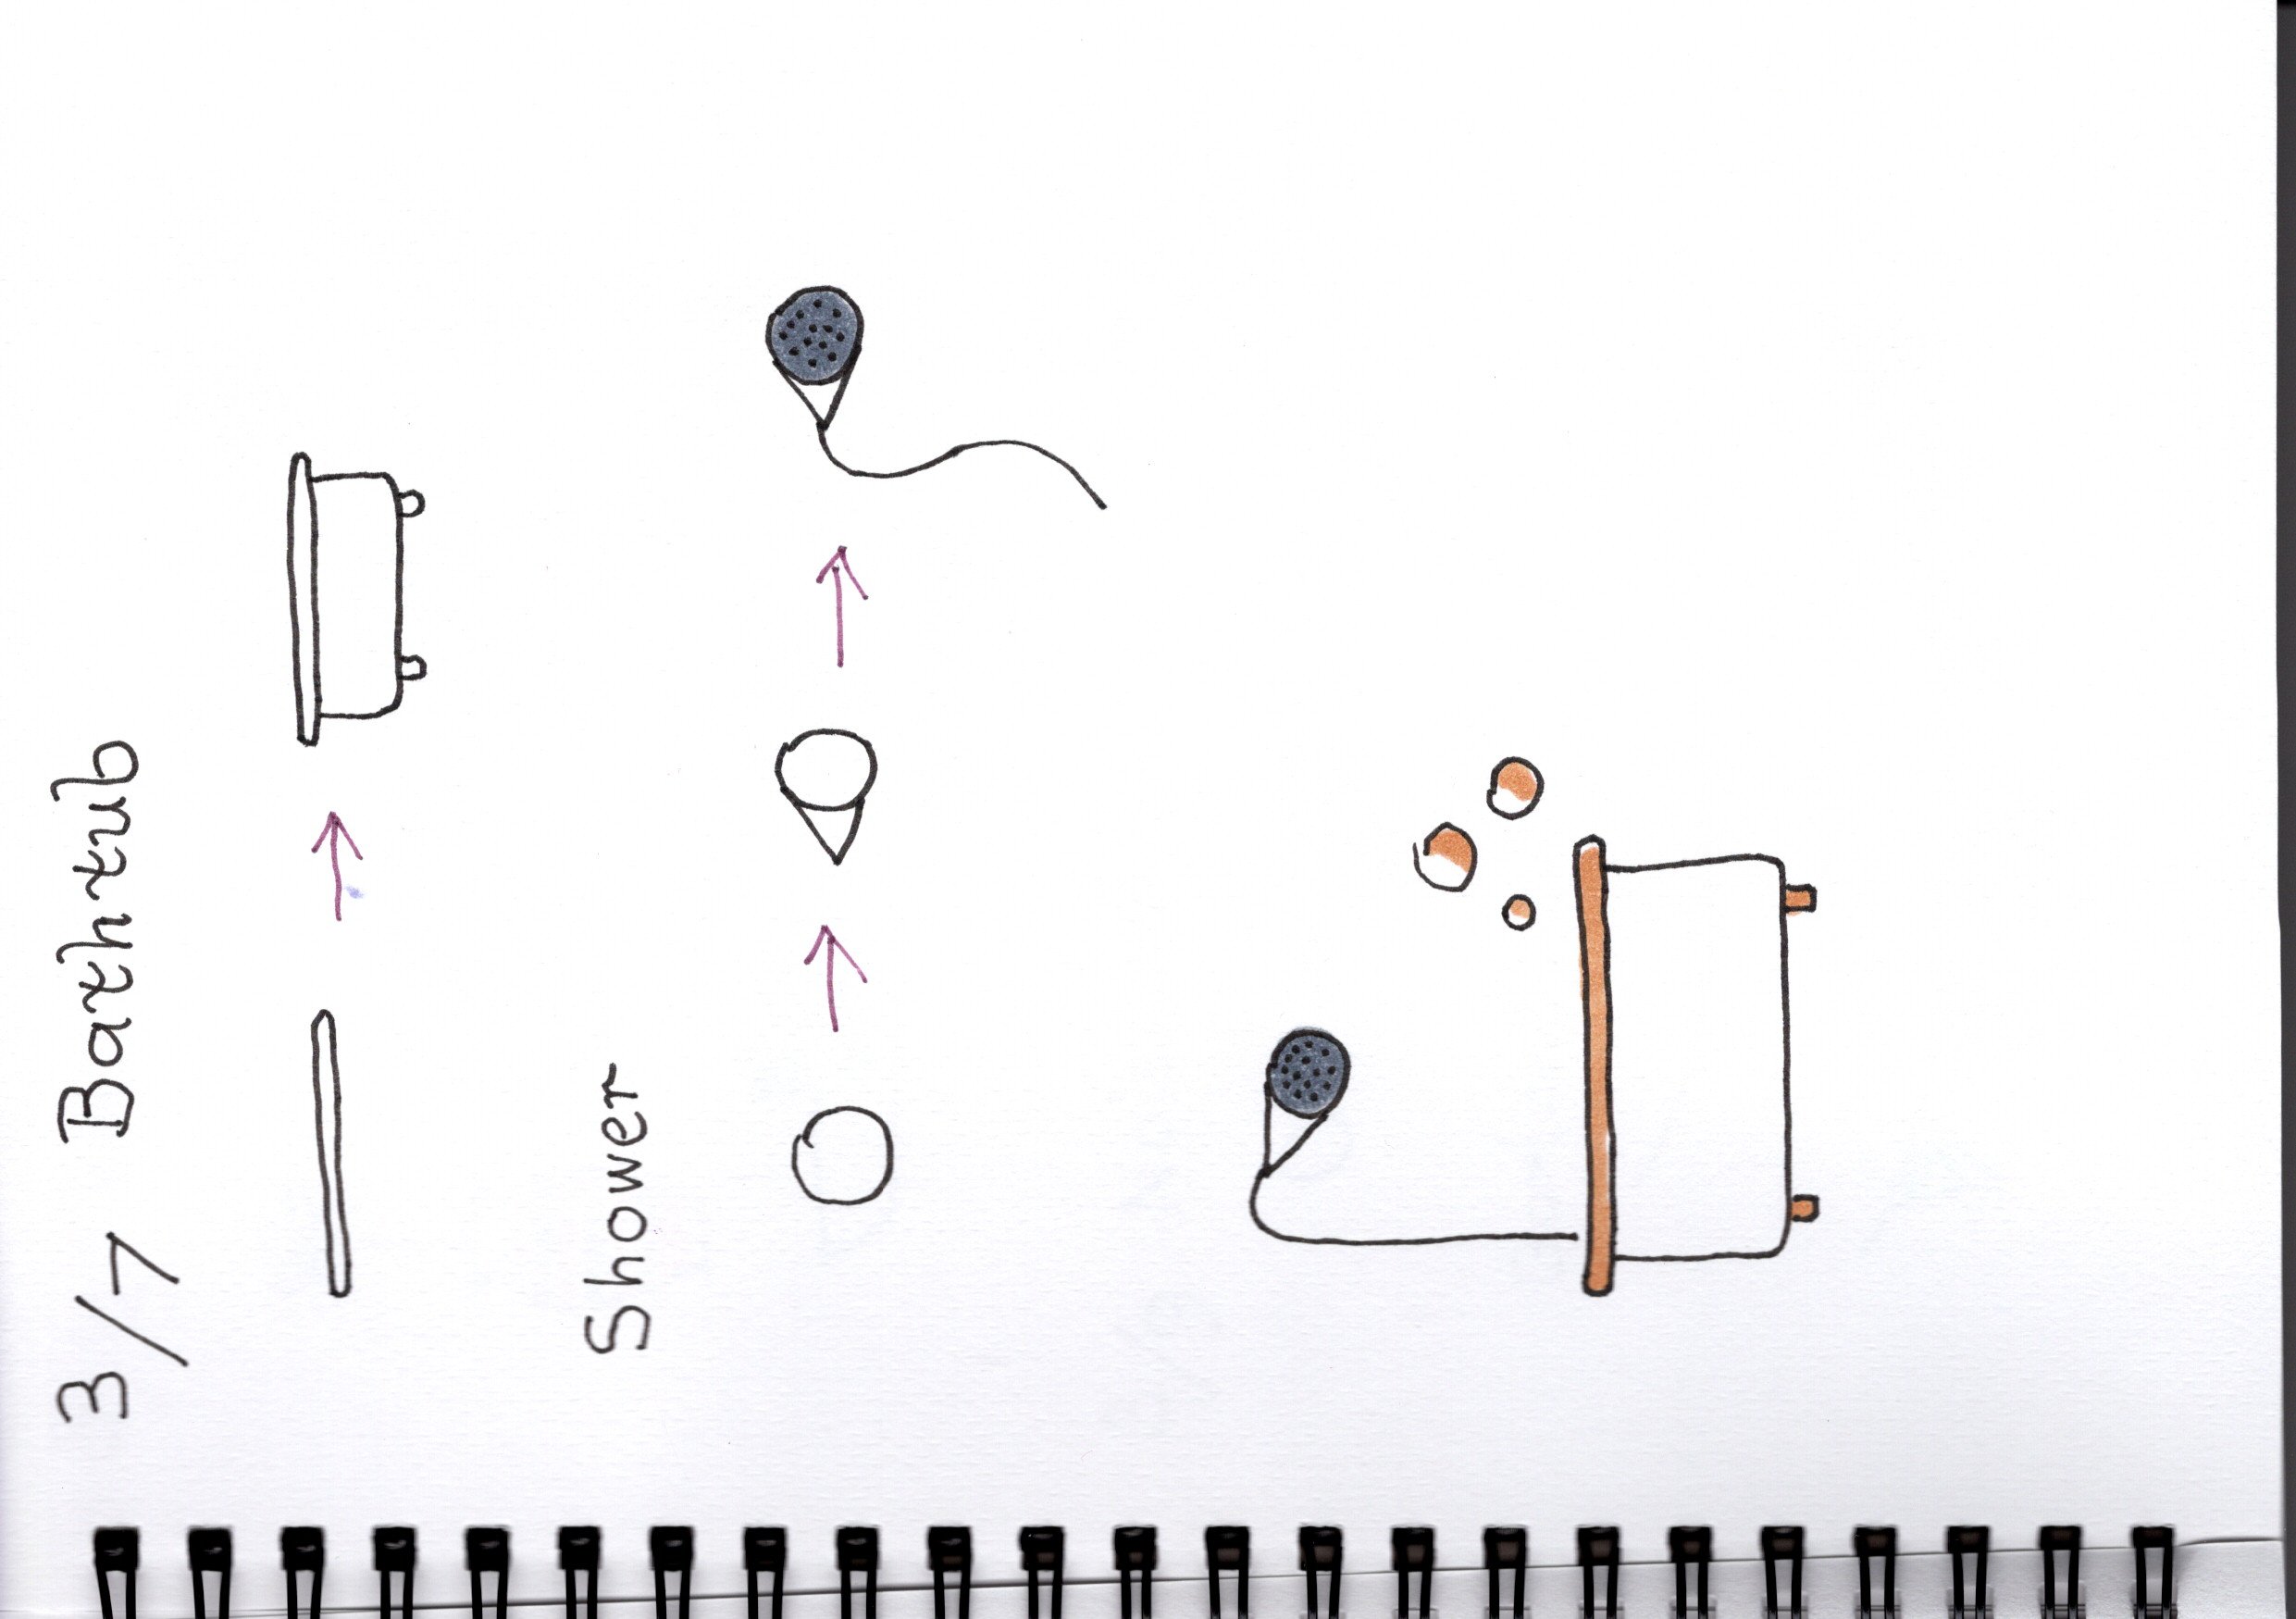 3/7 Bathtub
Shower